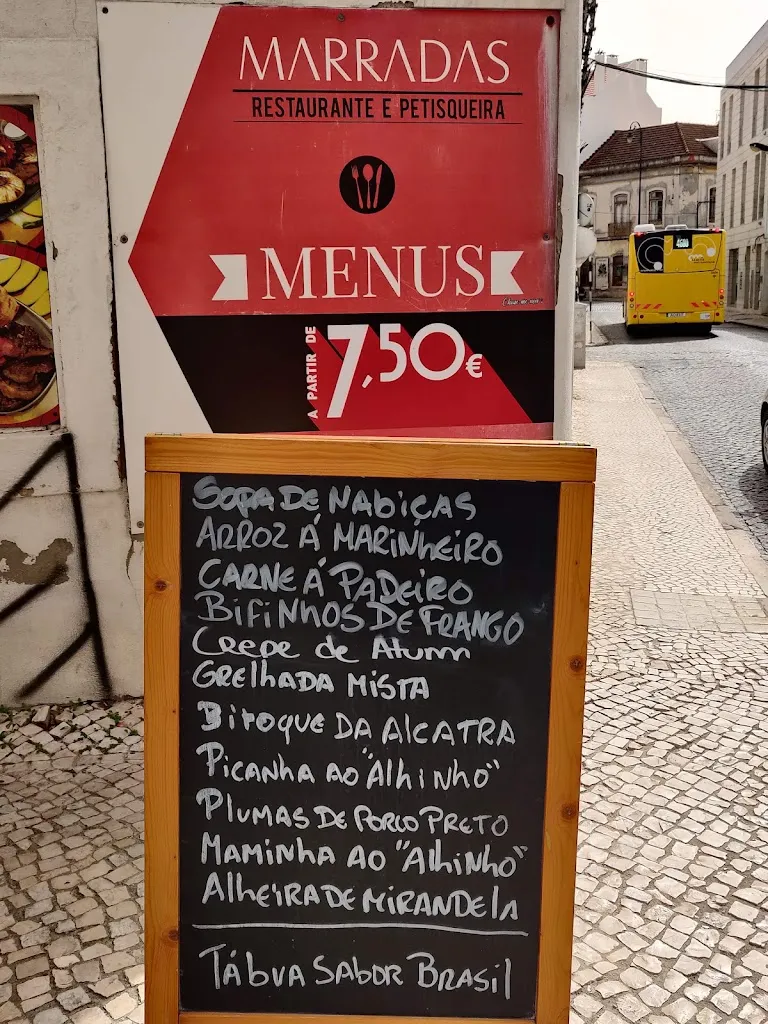 MARRADAS
RESTAURANTE E PETISQUEIRA
MENUS
A PARTIR DE
7,50€
SOPA DE NABIÇAS
ARROZ Á MARINHEIRO
CARNE Á PADEIRO
BIFINHOS DE FRANGO
Crepe de Atum
GRELHADA MISTA
BITOQUE DA ALCATRA
PICANHA AO "AlhiNho"
PLUMAS DE PORCO PRETO
MAMINHA AO "AlhiNhO"
AlhEIRA DE MIRANDELA
TÁBUA SABOR BRASIL